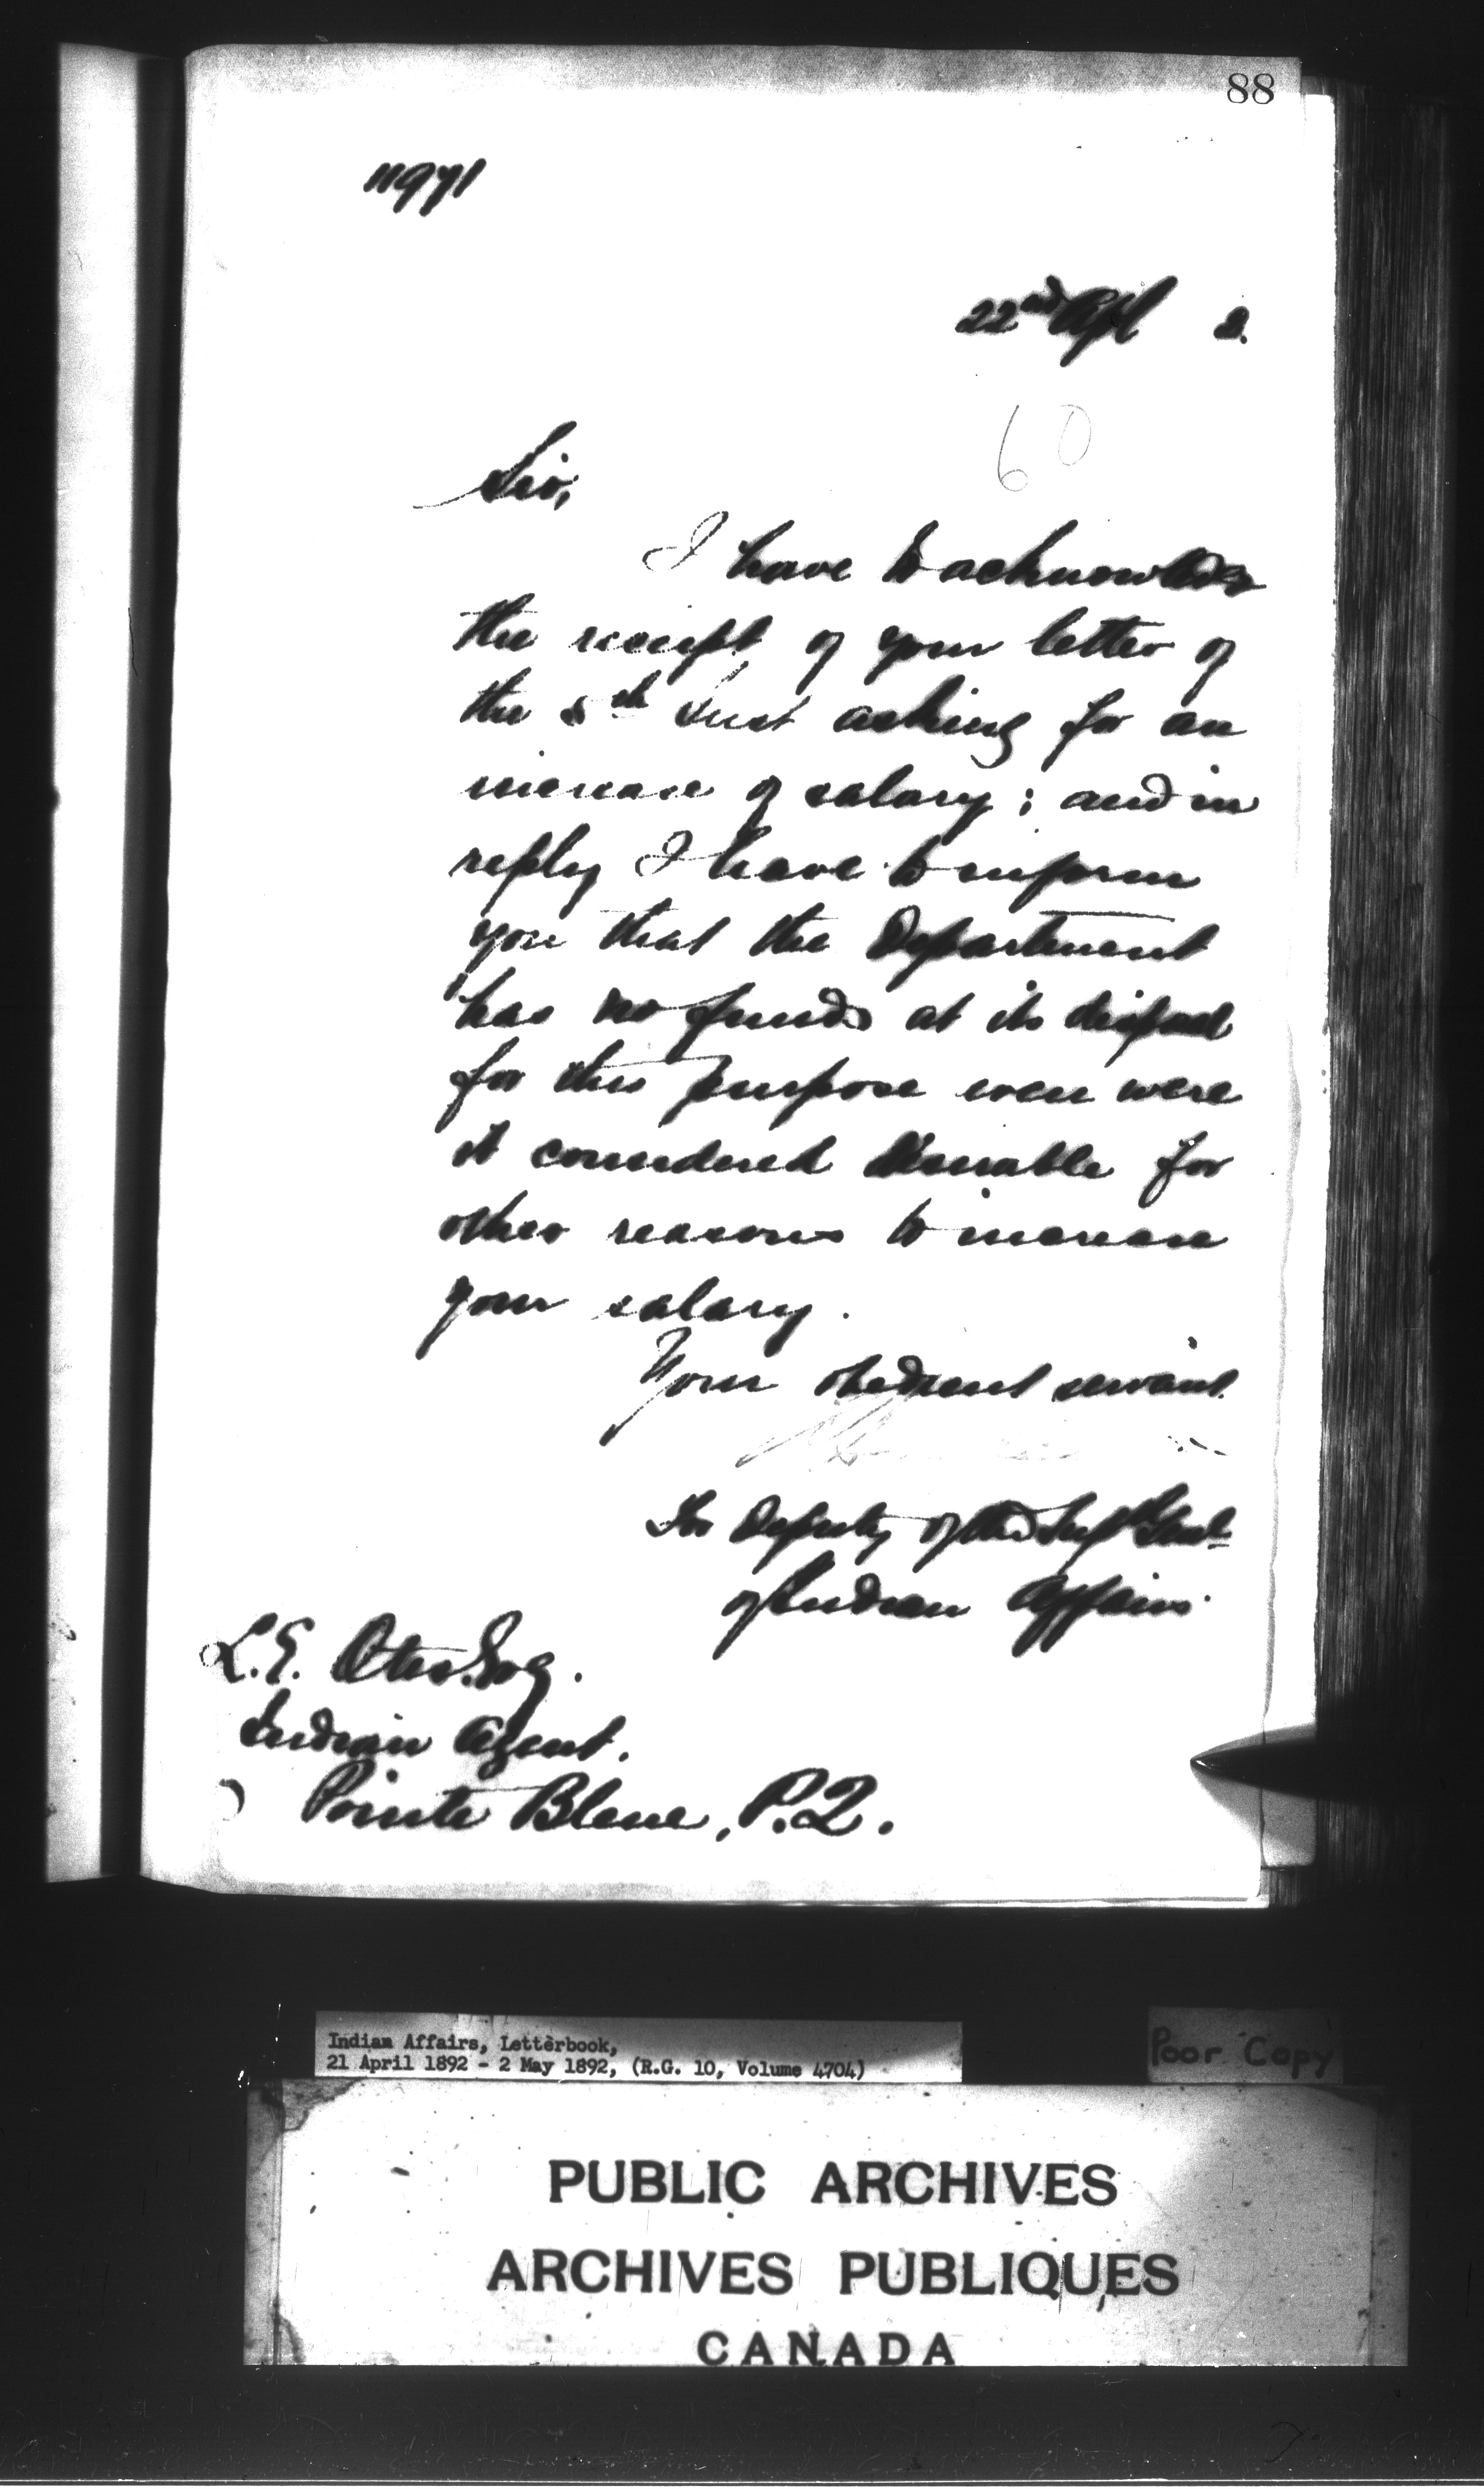 88
11971
22nd Apl 2.
60
Sir,
I have to acknowledge
the receipt of your letter of
the 8th Inst asking for an
increase of salary; and in
reply I have to inform
you that the Department
has no funds at its disposal
for this purpose even were
it considered desirable for
other reasons to increase
your salary.
Your obedient servant.
For Deputy of the Supt Genl
of Indian Affairs.
L.E. Otis Esq.
Indian Agent.
Pointe Bleue, P.Q.
Indian Affairs, Letterbook,
21 April 1892 - 2 May 1892, (R.G. 10, Volume 4704)
Poor Copy
PUBLIC ARCHIVES
ARCHIVES PUBLIQUES
CANADA